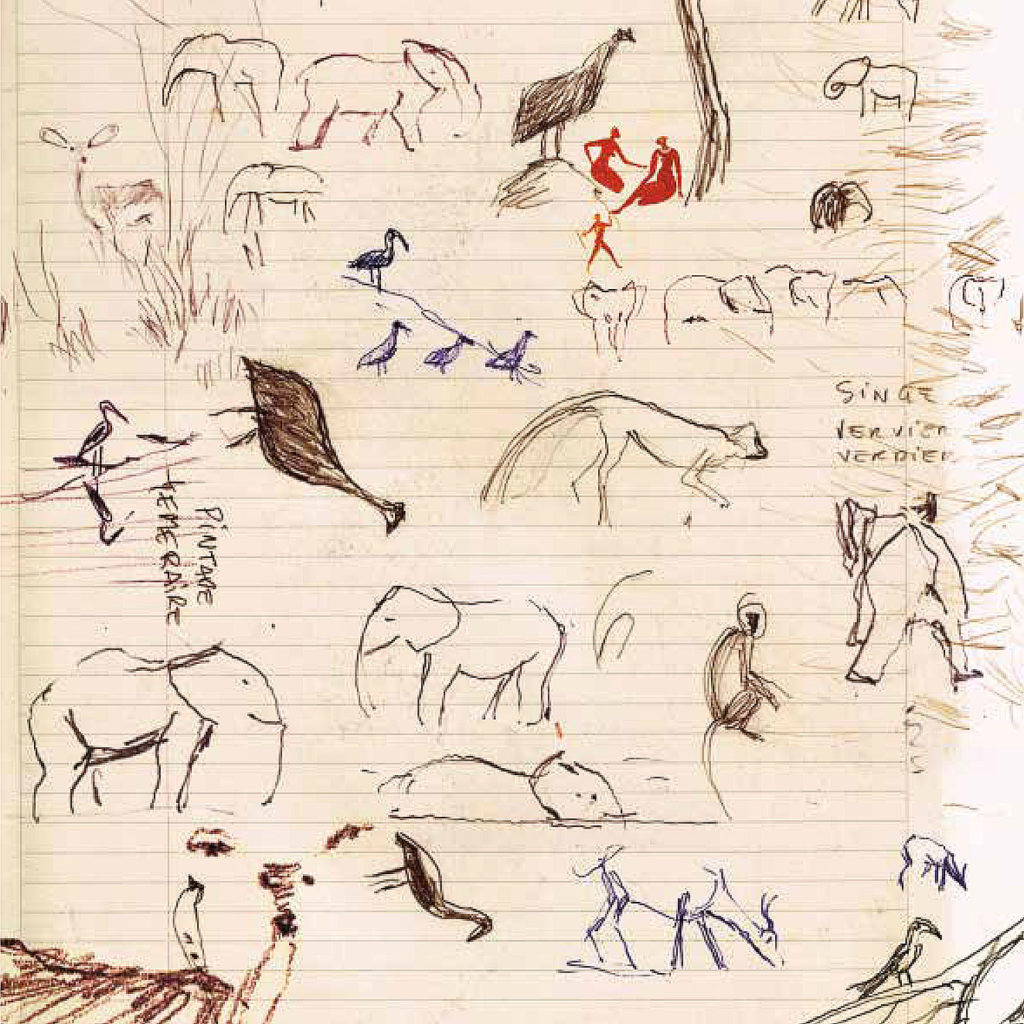 SINGE
VERVIER
VERDIER
PINTADE
TEMERAIRE